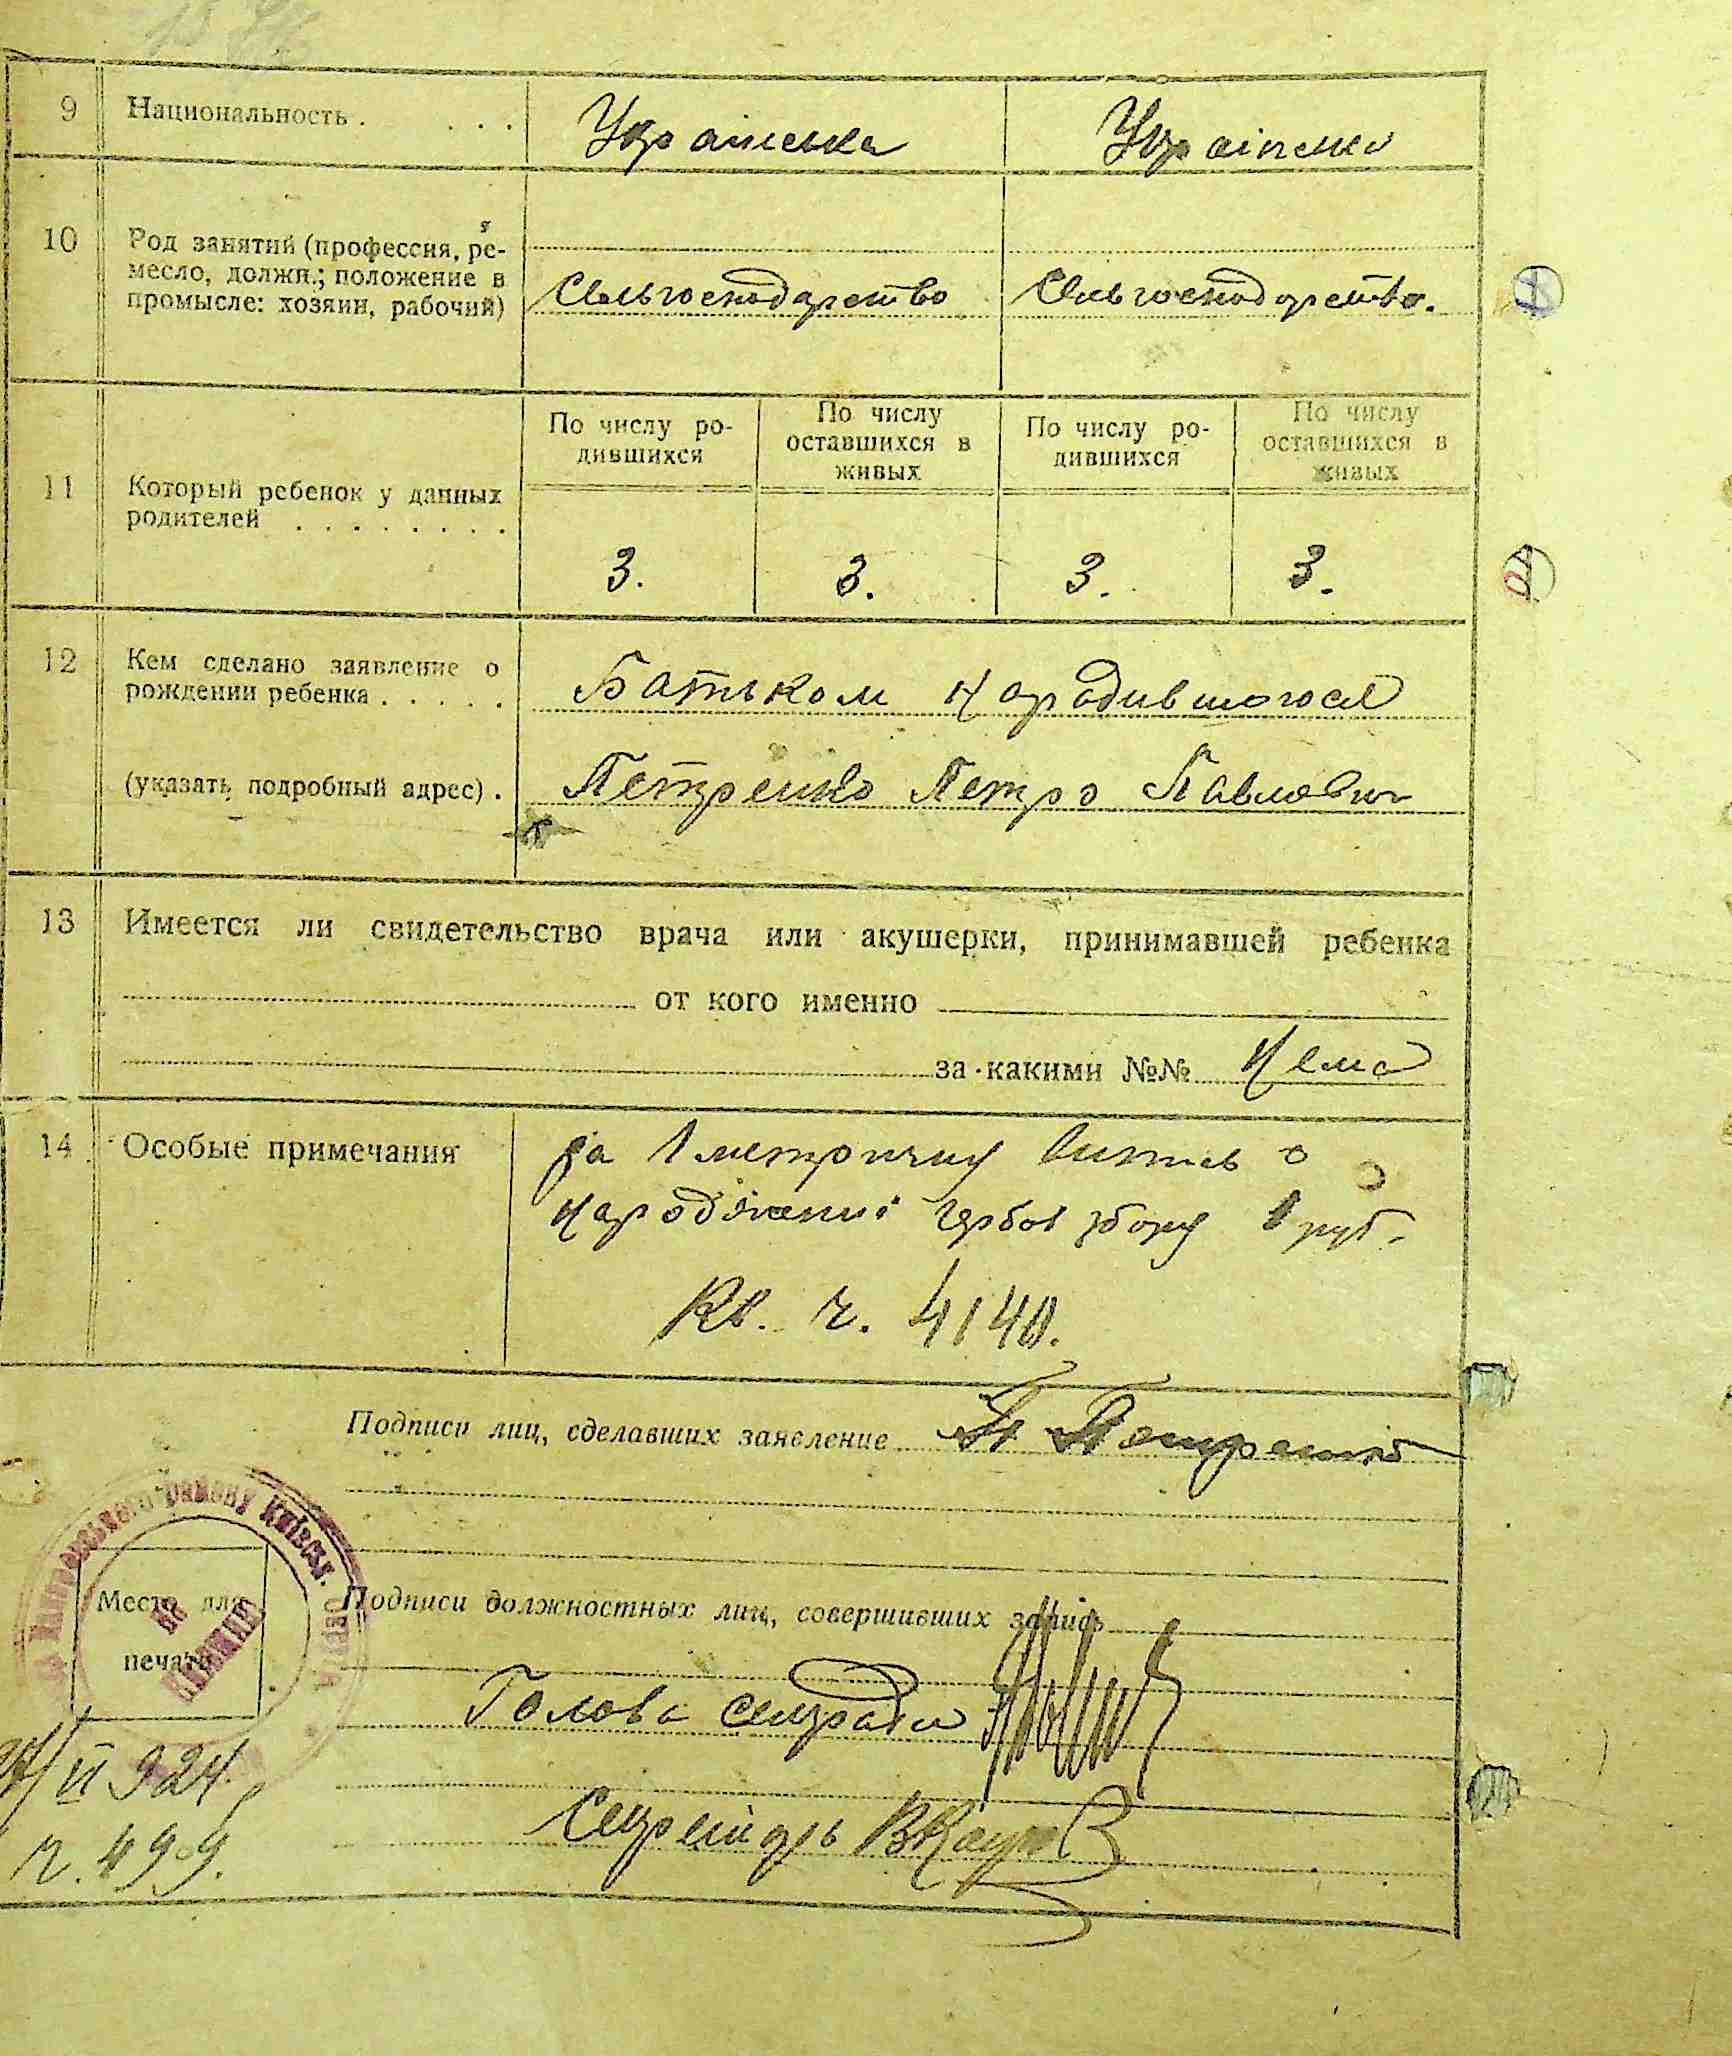 9 Национальность . . . . Українська Українська
10 Род занятий (профессия, ре-
месло, должн.; положение в
промысле: хозяин, рабочий)
Сільгосподарство Сільгосподарство.
11 Который ребенок у данных
родителей . . . . . . . .
По числу ро-
дившихся
По числу
оставшихся в
живых
По числу ро-
дившихся
По числу
оставшихся в
живых
3. 3. 3. 3.
12 Кем сделано заявление о
рождении ребенка . . . . .
Батьком народившогося
(указать подробный адрес) . Петренко Петро Павлович
13 Имеется ли свидетельство врача или акушерки, принимавшей ребенка
от кого именно
за какими №№ Нема
14 Особые примечания За 1 метричну випись о
народженні герб. збору 1 руб.
Кв. ч. 4140.
Подписи лиц, сделавших заявление П Петренко
Место для
печати
Подписи должностных лиц, совершивших запись
Голова сельради
Секретарь
II 924.
ч. 499.
району Київськ.